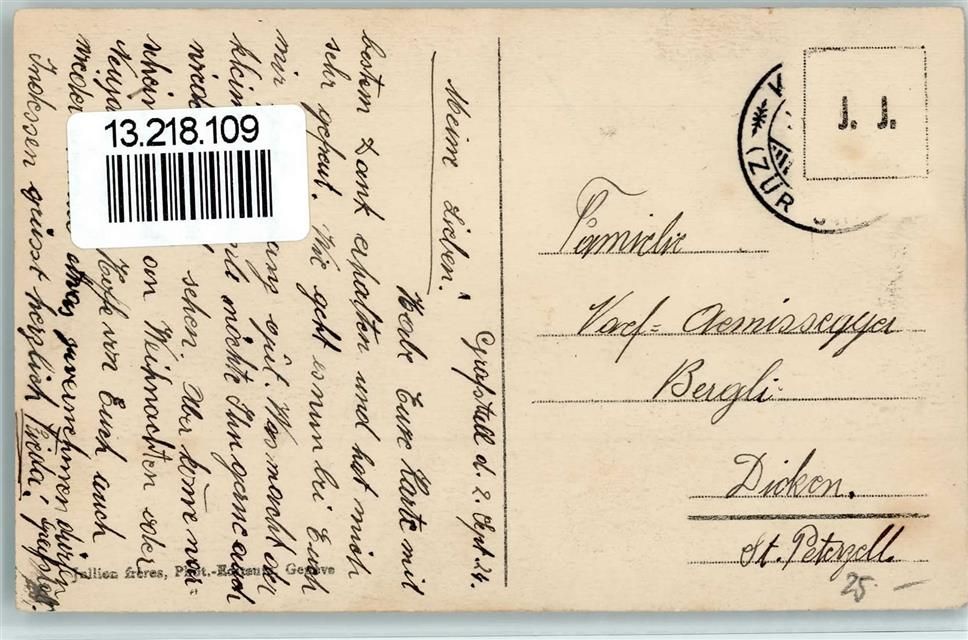 Grafstall d. 2 Sept. 24.
Meine Lieben.
Habe Eure Karte mit
bestem Dank erhalten und hat mich
sehr gefreut. Wie geht es nun bei Euch
mir gut. Was macht der
kleine möchte Ihn gerne auch
sehen. Aber komme
von Weihnachten oder
Neuja Hoffe von Euch auch
wieder etwas zu vernehmen dürfen
Indessen grüsst herzlich Frieda.
13.218.109
Jullien frères, Phot.-Editeurs, Genève
J. J.
(ZÜR
Familie
Naef-Aemissegger
Bergli
Dicken.
St. Peterzell.
25.-